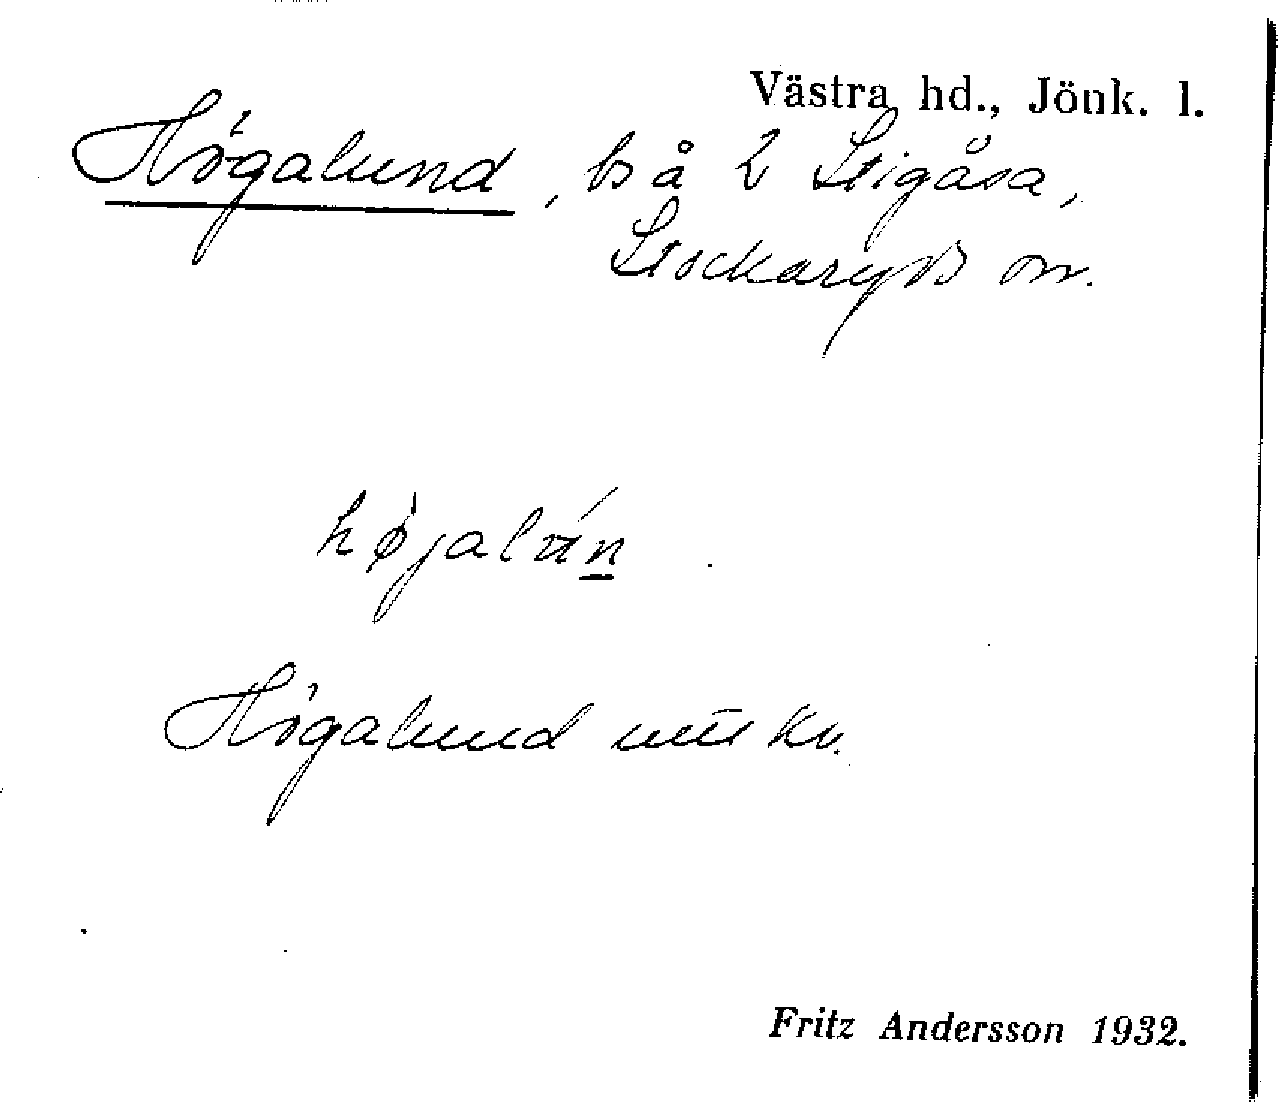 Västra hd., Jönk. l.
Högalund, bs å 2 Stigåsa,
Stockaryds sn.
højalún
Högalund
Fritz Andersson 1932.